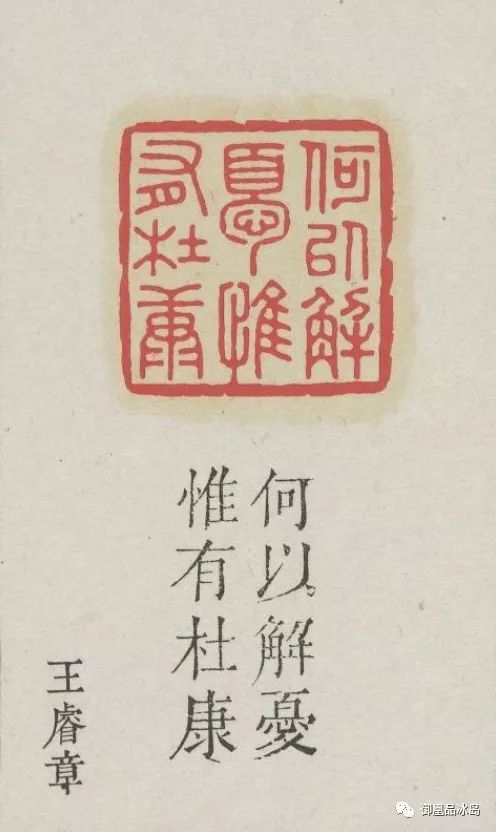 何以解
憂惟
有杜康
何以解憂
惟有杜康
王睿章
御凰品冰岛